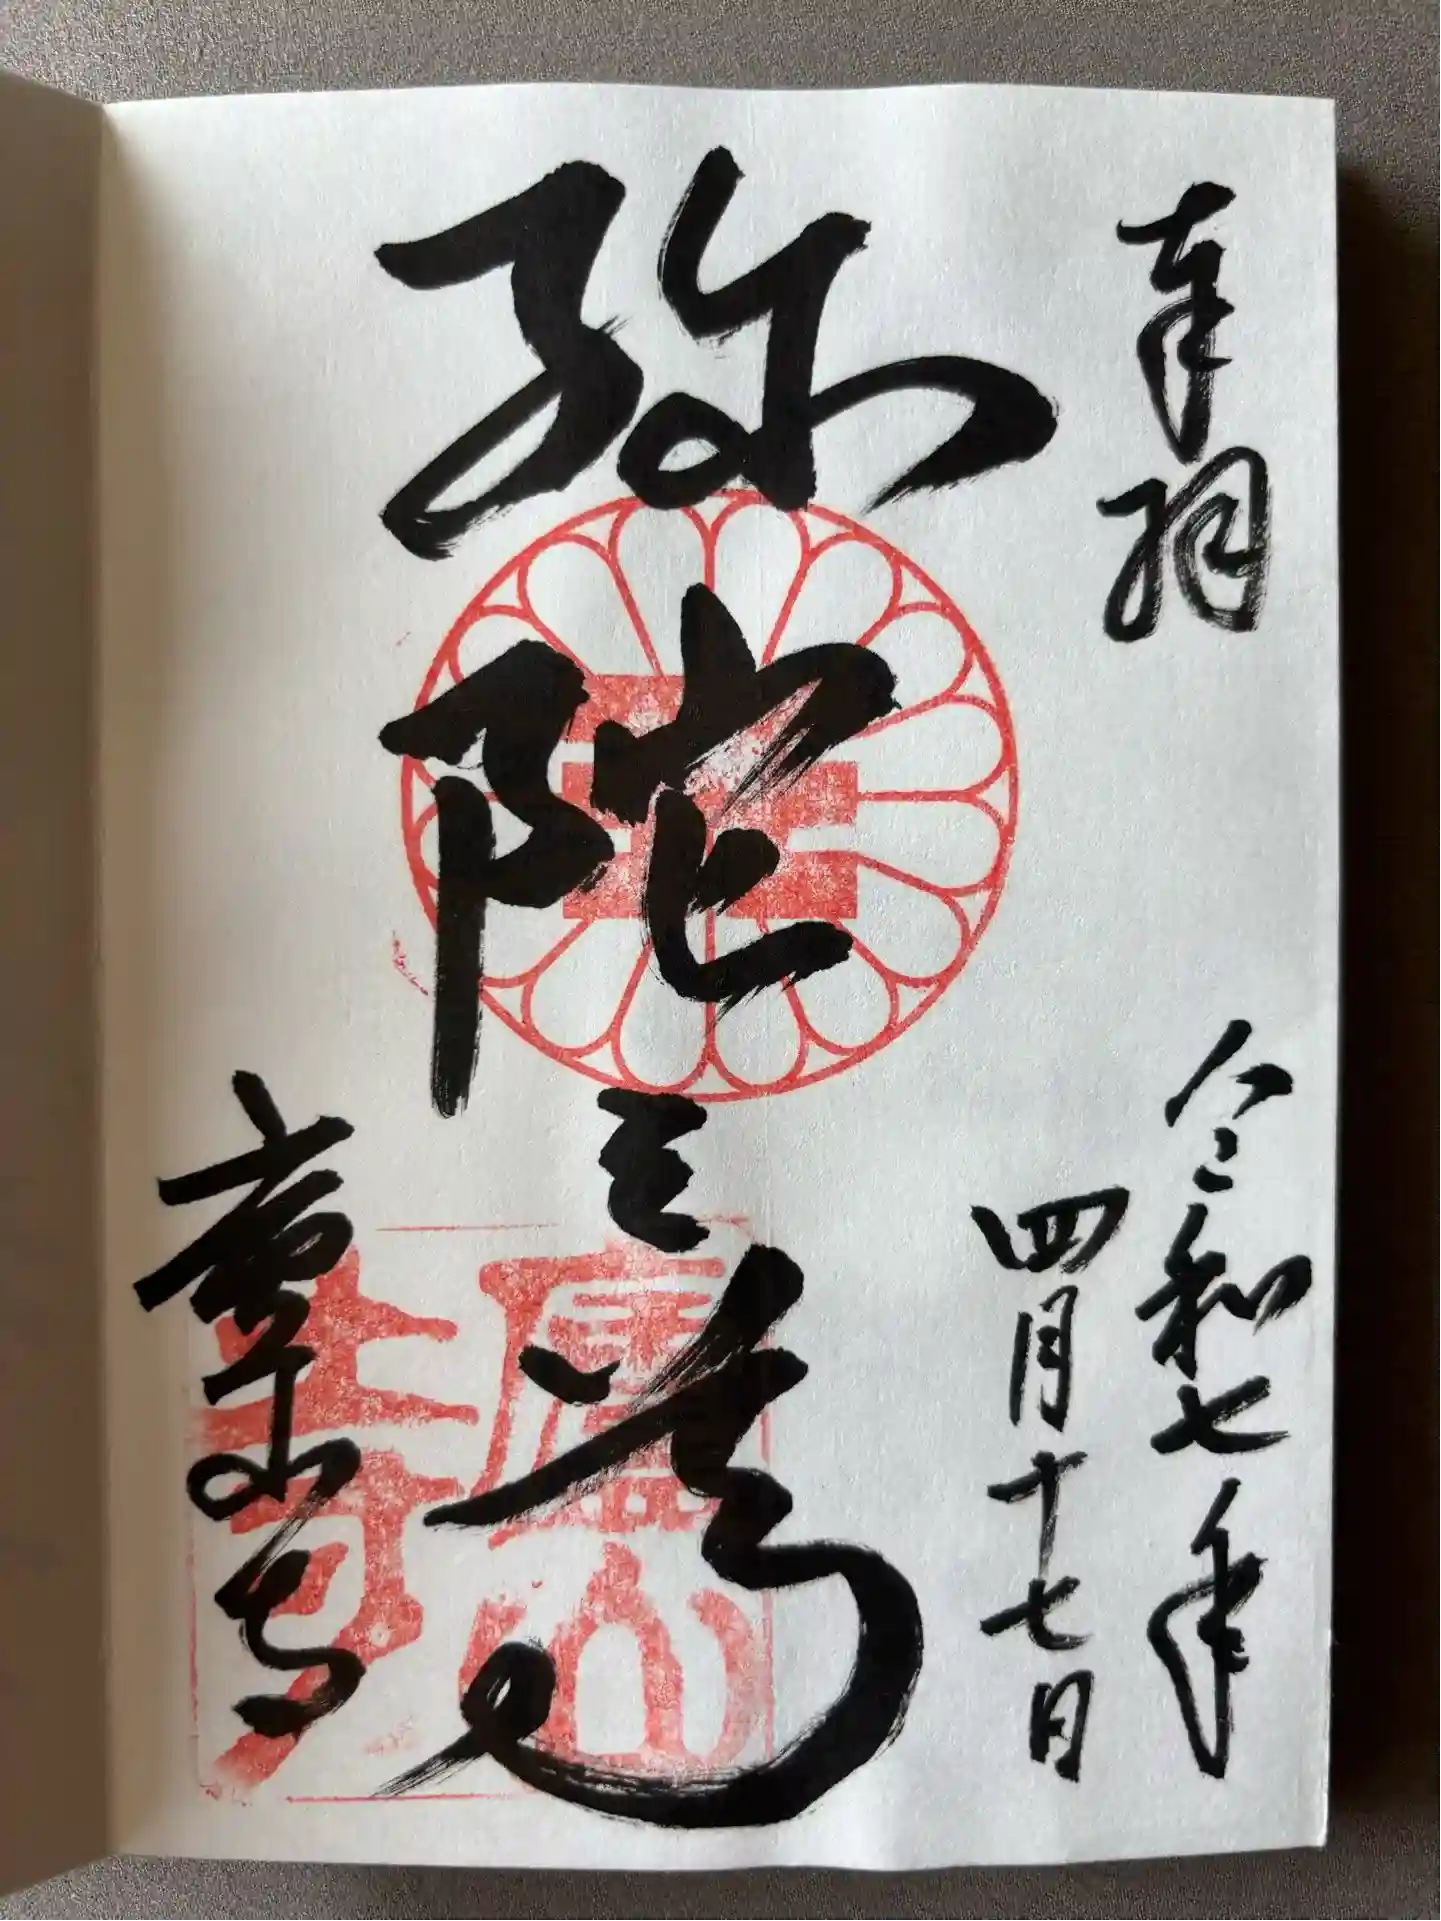 奉拝
令和七年
四月十七日
弥陀三尊
廬山寺
廬山寺